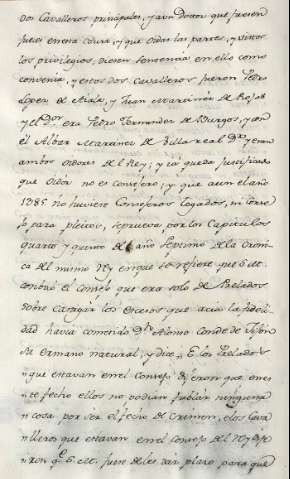 dos Cavalleros principales, y aun Doctor que fuesen
Jueces en esta causa, y que oidas las partes, y vistos
los privilegios, diesen sentencia en ello como
convenia, y estos dos Cavalleros fueron Pedro
Lopez de Aiala, y Juan Martinez de Rojas
y el Dor. era Pedro Fernandez de Burgos, y con
él Alvar Martinez de Villa real Dor. y eran
ambos oidores del Rey; y ia queda justificado
que oidor no es consejero; y que aun el año
1385 no huviese Consejeros Togados, ni Conse
jo para pleitos, se prueva por los Capitulos
quarto y quinto del año septimo de la Croni
ca del mismo Rey en que se refiere que S. M.
combocó el consejo que era solo de Prelados
sobre castigar los excesos que acia la fideli
dad havia cometido Dn. Alonso Conde de Jijon
su Ermano natural, y dice, E los Prellados
que estavan en el Consejo dijeron que en es
te fecho ellos no podian fablar ninguna
cosa por ser el fecho de Crimen, e los Cava
lleros que estavan en el Consejo del Rey dije
ron qe. S. M. fuese de les dar plazo para que